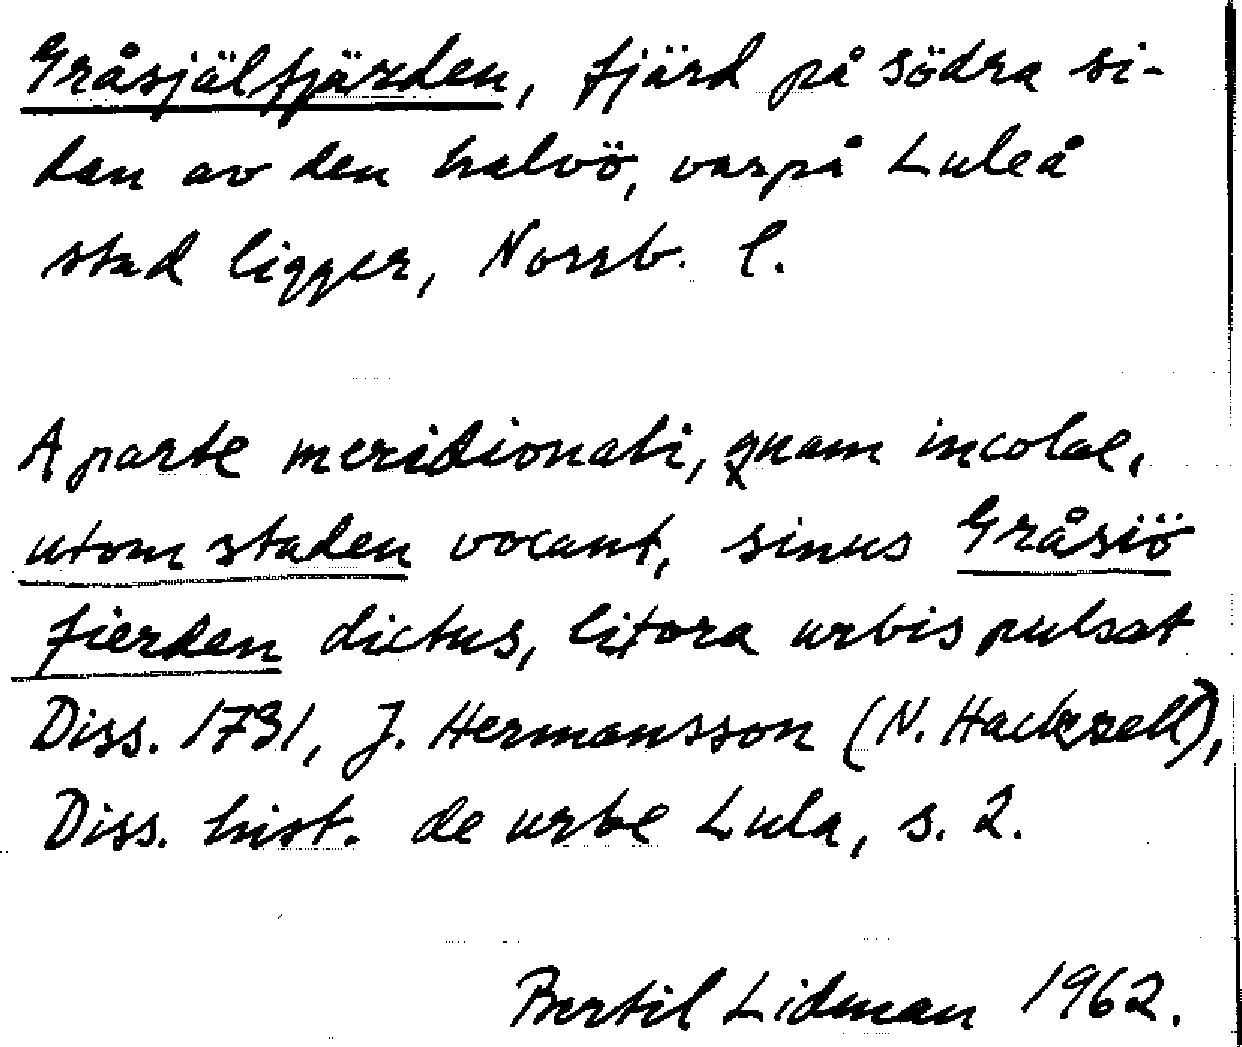 Gråsjälfjärden, fjärd på södra si-
dan av den halvö, varpå Luleå
stad ligger, Norrb. l.
A parte meridionali, quam incolae,
utom staden vocant, sinus Gråsiö
fierden dictus, litora urbis pulsat
Diss. 1731, J. Hermansson (N. Hackzell),
Diss. hist. de urbe Lula, s. 2.
Bertil Lidman 1962.